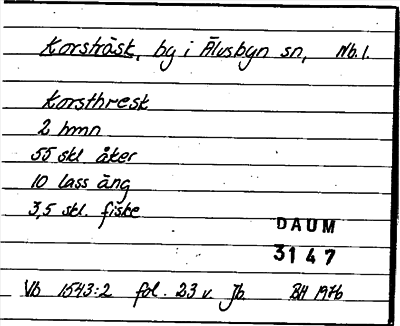 Korsträsk, by i Älvsbyn sn, Nb.l.
Korsthresk
2 hmn
55 skl åker
10 lass äng
3,5 skl. fiske
DAUM
3147
Vb 1543:2 fol. 23 v. Jb. BH 1976